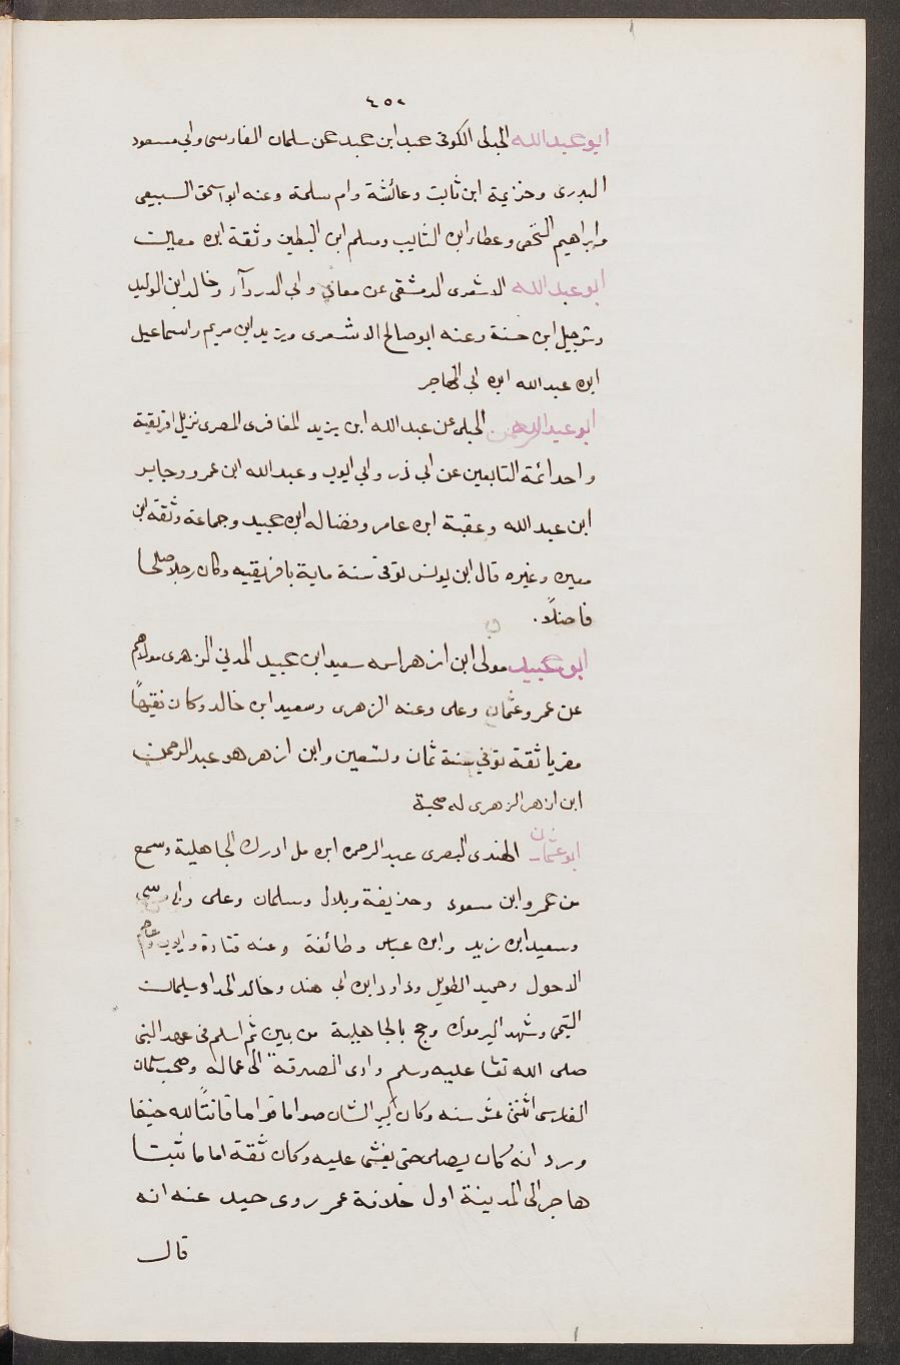 ٤٥٠
ابو عبد الله الجبلى الكوفى عبد ابن عبد عن سلمان الفارسى وابي مسعود
البدرى وخزيمة ابن ثابت وعائشة وام سلمة وعنه ابو اسحق السبيعى
وابراهيم النخعى وعطاء ابن السايب ومسلم ابن البطين وثقة ابن معين
ابو عبد الله الاشعرى الدمشقى عن معاذ وابي الدردآء وخالد ابن الوليد
وشرجيل ابن حسنة وعنه ابو صالح الاشعرى ويزيد ابن مريم واسماعيل
ابن عبد الله ابن ابي المهاجر
ابو عبد الرحمن الحبلى عن عبد الله ابن يزيد المعافرى المصرى نزيل افريقية
واحد ائمة التابعين عن ابي ذر وابي ايوب وعبد الله ابن عمرو وجابر
ابن عبد الله وعقبة ابن عامر وفضاله ابن عبيد وجماعة وثقه ابن
معين وغيره قال ابن يونس توفى سنة ماية بافريقيه وكان رجلا صالحا
فاضلاً.
ابو عبيد مولى ابن ازهر اسمه سعيد ابن عبيد المدني الزهرى مولاهم
عن عمر وعثمان وعلى وعنه الزهرى وسعيد ابن خالد وكان فقيهاً
مقريا ثقة توفي سنة ثمان وتسعين وابن ازهر هو عبد الرحمن
ابن ازهر الزهرى له صحبة
ابو عثمان الهندى البصرى عبد الرحمن ابن مل ادرك الجاهلية وسمع
من عمر وابن مسعود وحذيفة وبلال وسلمان وعلى وابي موسى
وسعيد ابن زيد وابن عباس وطائفة وعنه قتادة وايوب وعاصم
الاحول وحميد الطويل وداود ابن ابي هند وخالد الحدا وسليمان
التيمى وشهد اليرموك وحج بالجاهلية من بين ثم اسلم فى عهد النبى
صلى الله تعا عليه وسلم وادى الصدقة الى عماله وصحب سلمان
الفارسى اثنتى عشر سنه وكان كبير الشان صواما قواما قانتاً لله حنيفا
ورد انه كان يصلى حتى يغشى عليه وكان ثقة اماما ثبتا
هاجر الى المدينة اول خلافة عمر روى حميد عنه انه
قال